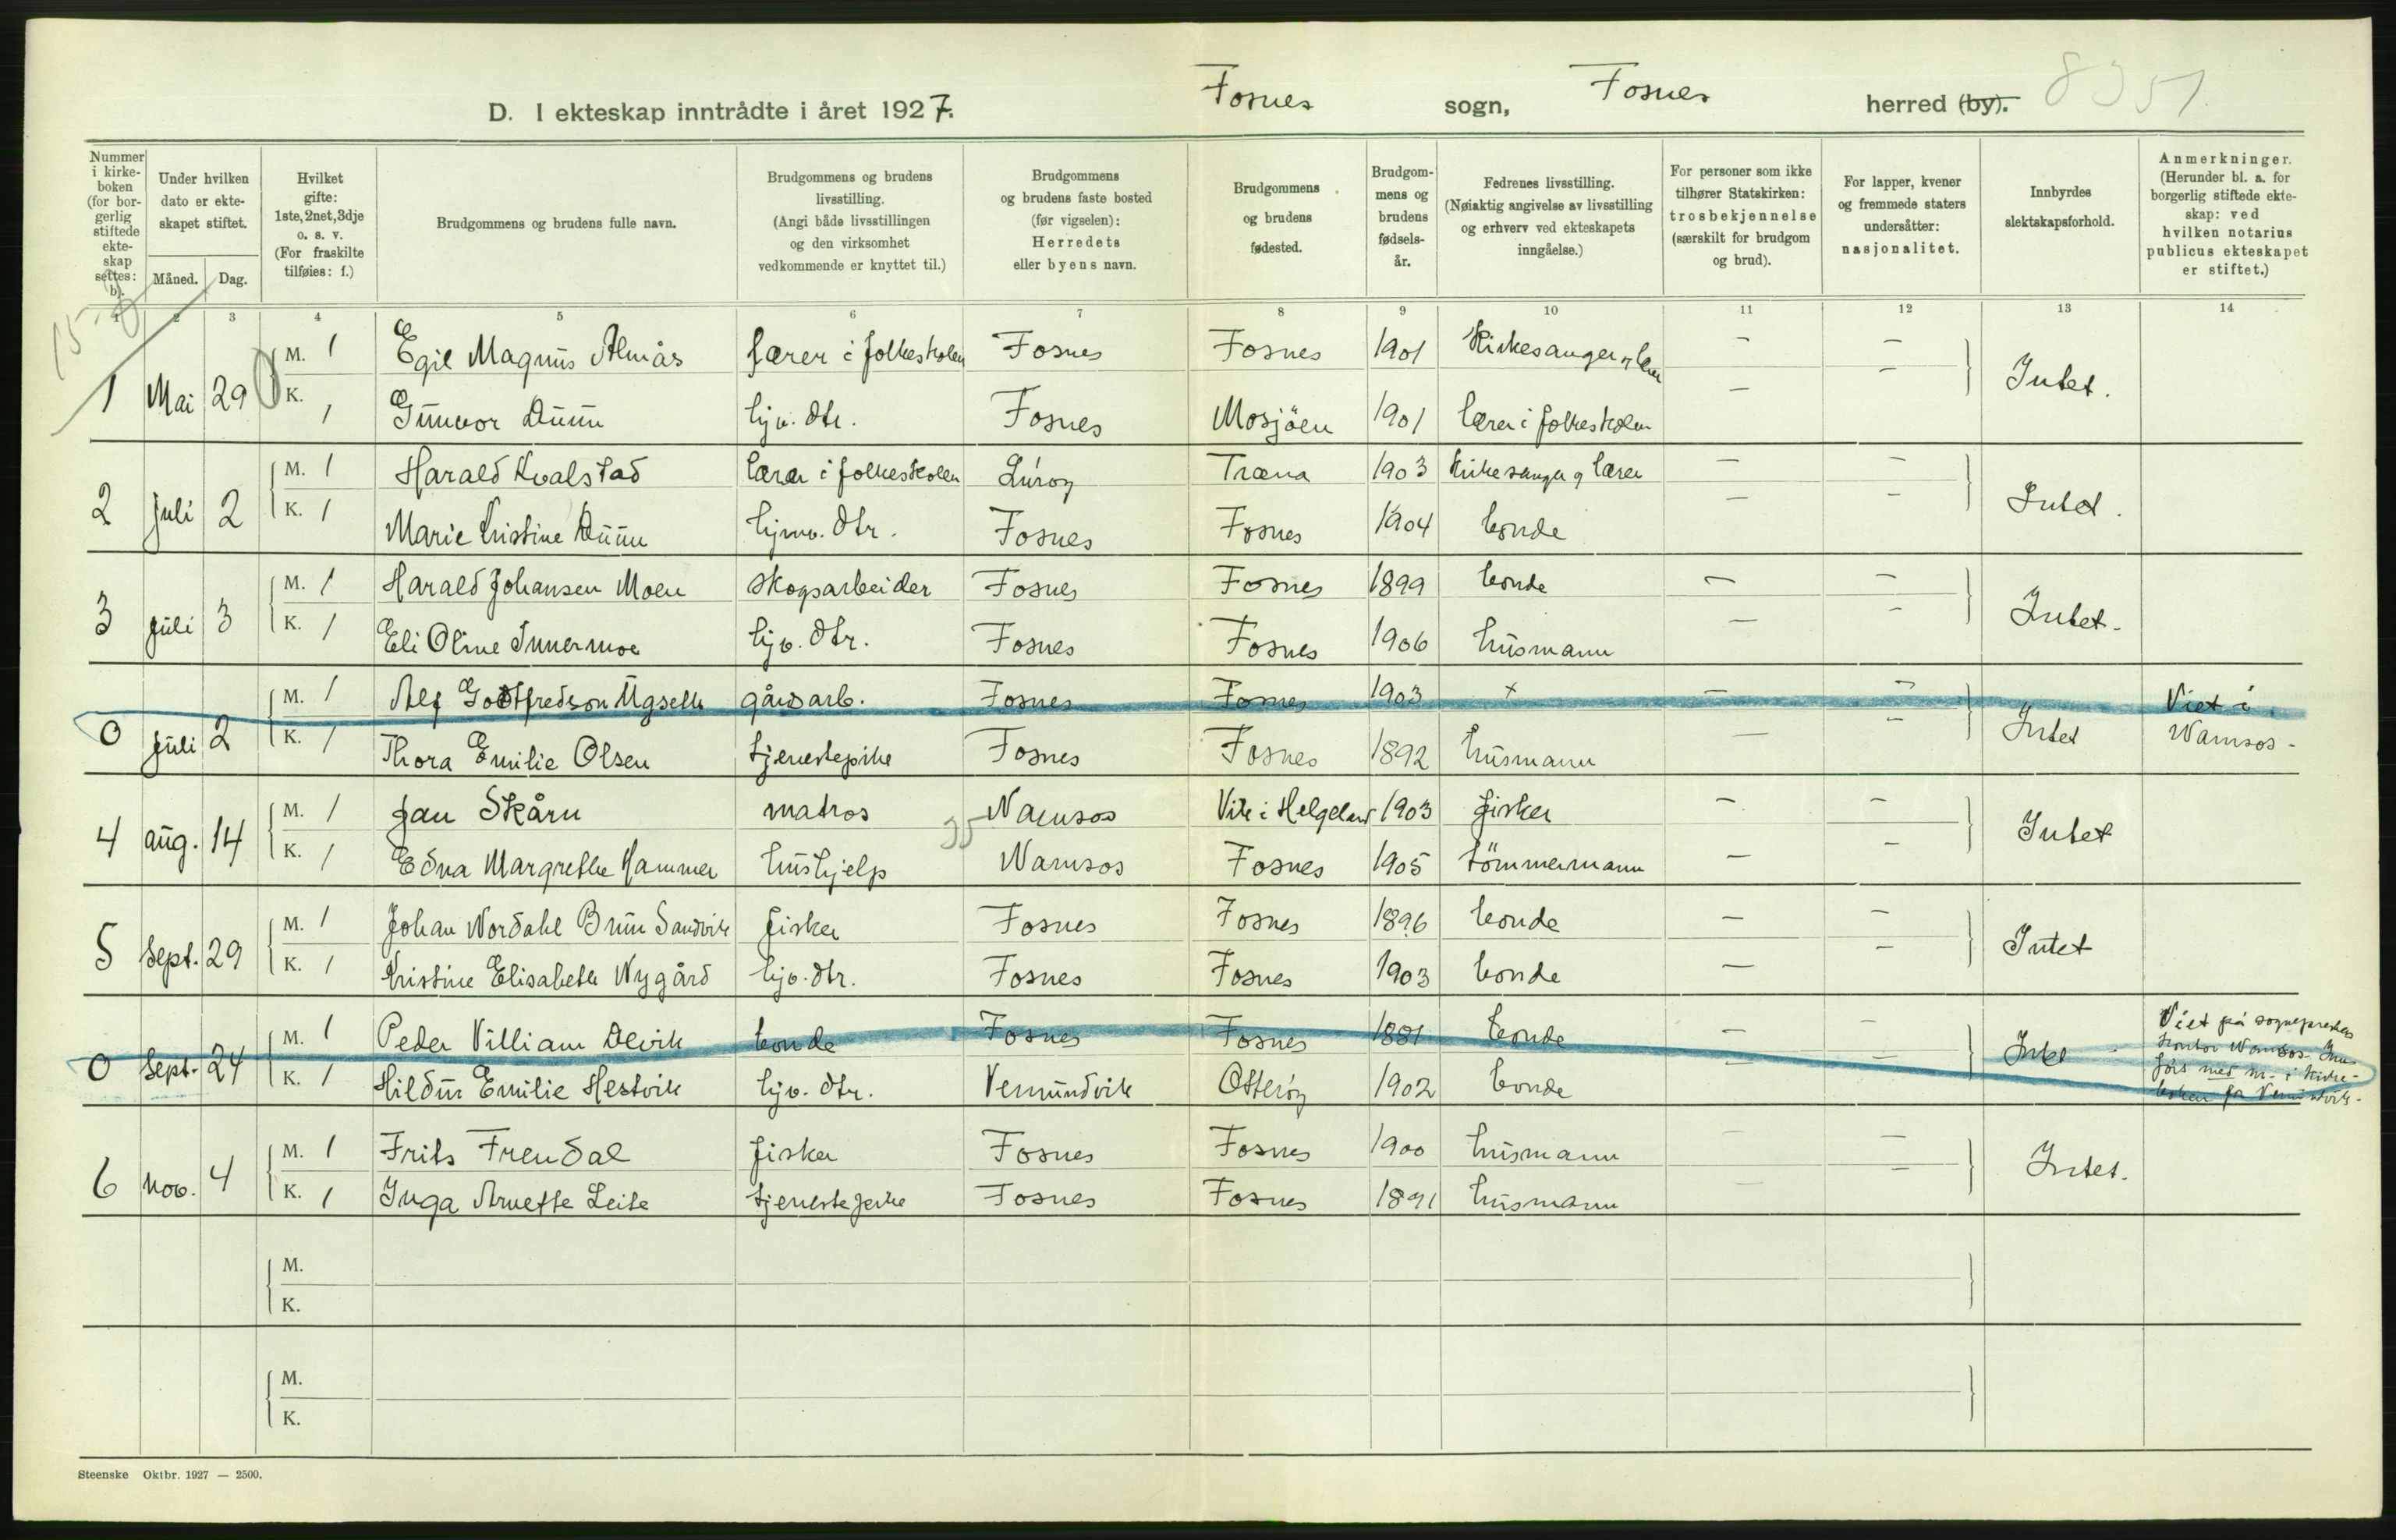 D. I ekteskap inntrådte i året 1927. Fosnes sogn, Fosnes herred (by). 8351.
Nummer i kirkeboken (for borgerlig stiftede ekteskap settes: b).
Under hvilken dato er ekteskapet stiftet.
Måned. Dag.
Hvilket gifte: 1ste, 2net, 3dje o. s. v. (For fraskilte tilføies: f.)
Brudgommens og brudens fulle navn.
Brudgommens og brudens livsstilling. (Angi både livsstillingen og den virksomhet vedkommende er knyttet til.)
Brudgommens og brudens faste bosted (før vigselen): Herredets eller byens navn.
Brudgommens og brudens fødested.
Brudgommens og brudens fødselsår.
Fedrenes livsstilling. (Nøiaktig angivelse av livsstilling og erhverv ved ekteskapets inngåelse.)
For personer som ikke tilhører Statskirken: trosbekjennelse (særskilt for brudgom og brud).
For lapper, kvener og fremmede staters undersåtter: nasjonalitet.
Innbyrdes slektskapsforhold.
Anmerkninger. (Herunder bl. a. for borgerlig stiftede ekteskap: ved hvilken notarius publicus ekteskapet er stiftet.)
1 2 3 4 5 6 7 8 9 10 11 12 13 14
M. 1 Egil Magnus Almås lærer i folkeskolen Fosnes Fosnes 1901 Kirkesanger og lærer — —
1 Mai 29 Intet.
K. 1 Gunvor Duun hjv. dtr. Fosnes Mosjöen 1901 lærer i folkeskolen — —
M. 1 Harald Kvalstad lærer i folkeskolen Lúröy Træna 1903 Kirkesanger og lærer — —
2 Juli 2 Intet.
K. 1 Marie Kristine Duun hjmv. dtr. Fosnes Fosnes 1904 bonde — —
M. 1 Harald Johansen Moen skogsarbeider Fosnes Fosnes 1899 bonde — —
3 Juli 3 Intet.
K. 1 Eli Oline Innermoe hjv. dtr. Fosnes Fosnes 1906 husmann — —
M. 1 Alf Godtfredson gårdsarb. Fosnes Fosnes 1903 + — — Viet i
0 Juli 2 Intet Namsos.
K. 1 Thora Emilie Olsen tjenestepike Fosnes Fosnes 1892 husmann — —
M. 1 Jan Skårn matros Namsos Vik i Helgeland 1903 fisker — —
4 aug. 14 Intet
K. 1 Edna Margrethe Hammer hushjelp Namsos Fosnes 1905 tömmermann — —
M. 1 Johan Nordahl Brun Sandvik fisker Fosnes Fosnes 1896 bonde — —
5 Sept. 29 Intet
K. 1 Kristine Elisabeth Nygård hjv. dtr. Fosnes Fosnes 1903 bonde — —
M. 1 Peder Villiam Devik bonde Fosnes Fosnes 1881 bonde — — Viet på sogneprestens
0 Sept. 24 Intet kontor Namsos. Inn-
K. 1 Hildur Emilie Hestvik hjv. dtr. Vemundvik Otteröy 1902 bonde — — förs med nr. i kirke-
boken for Vemundvik.
M. 1 Frits Frendal fisker Fosnes Fosnes 1900 husmann — —
6 nov. 4 Intet.
K. 1 Inga Anette Leite tjenestepike Fosnes Fosnes 1891 husmann — —
M.
K.
M.
K.
Steenske Oktbr. 1927 — 2500.